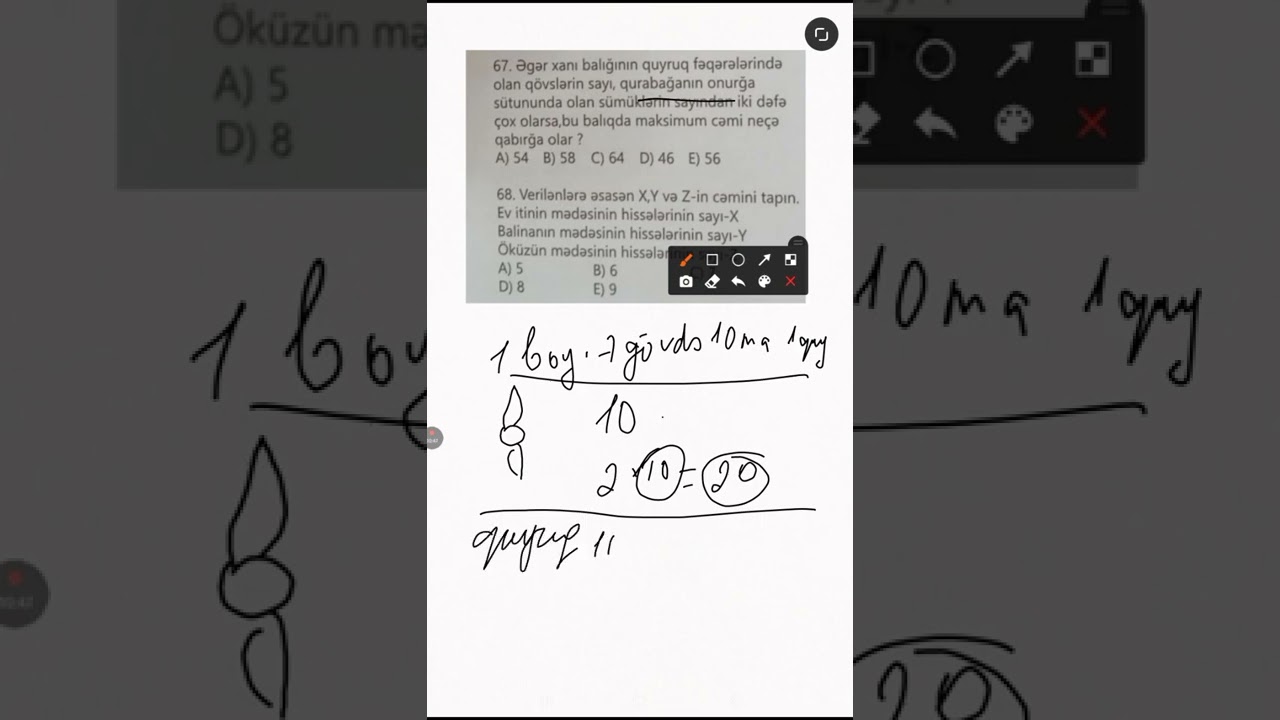 67. Əgər xanı balığının quyruq fəqərələrində
olan qövslərin sayı, qurabağanın onurğa
sütununda olan sümüklərin sayından iki dəfə
çox olarsa,bu balıqda maksimum cəmi neçə
qabırğa olar ?
A) 54 B) 58 C) 64 D) 46 E) 56
68. Verilənlərə əsasən X,Y və Z-in cəmini tapın.
Ev itinin mədəsinin hissələrinin sayı-X
Balinanın mədəsinin hissələrinin sayı-Y
Öküzün mədəsinin
A) 5 B) 6
D) 8 E) 9
1 boy. 7 gövdə 10 ma 1 quy
10
2 10 = 20
quyruq 11
Öküzün
A) 5
D) 8
1 boy
10 ma 1 quy
20